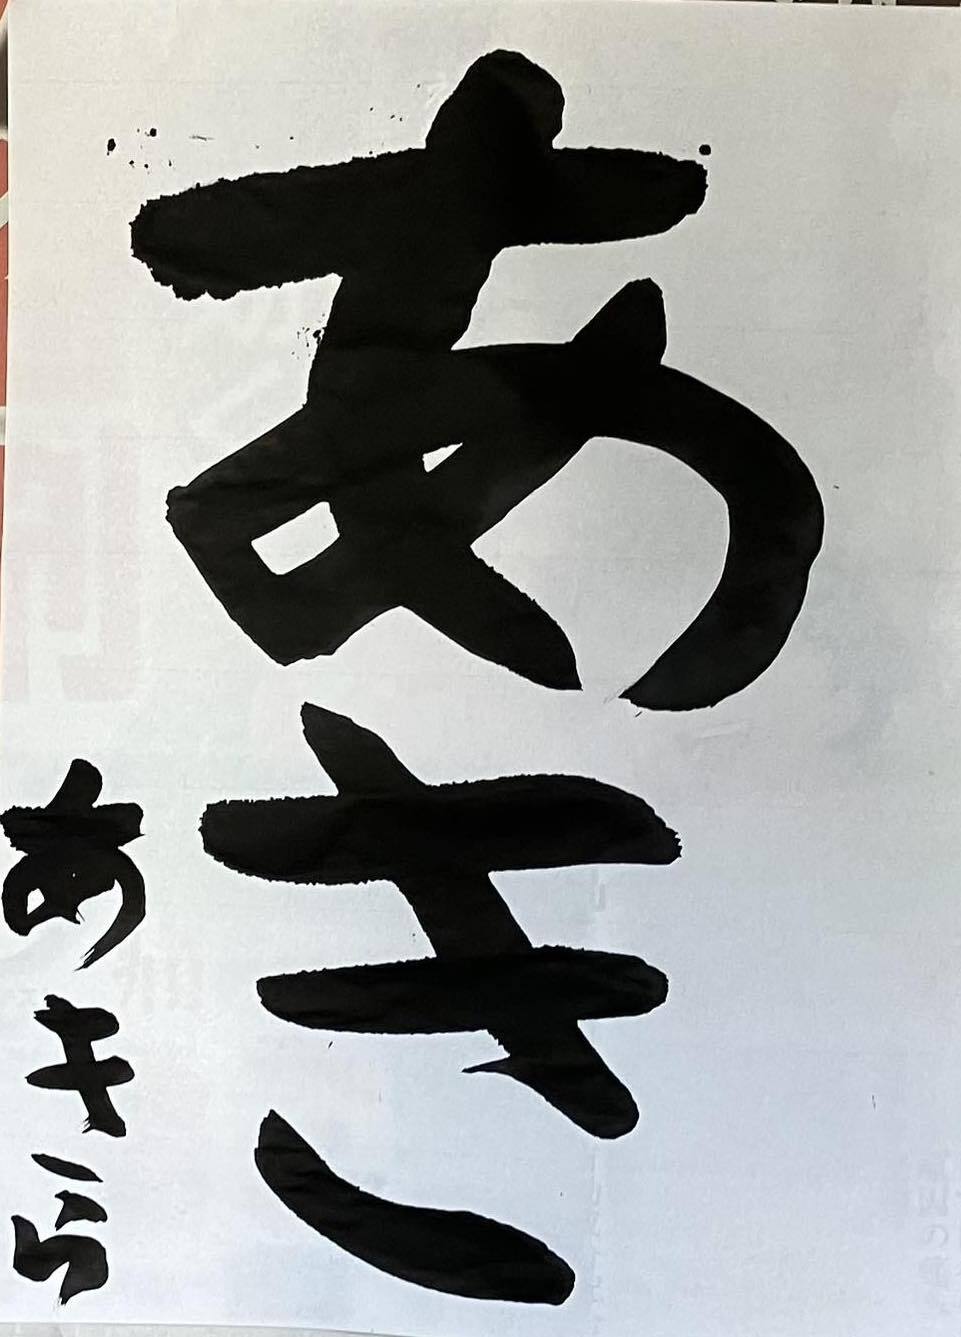 あき
あきら